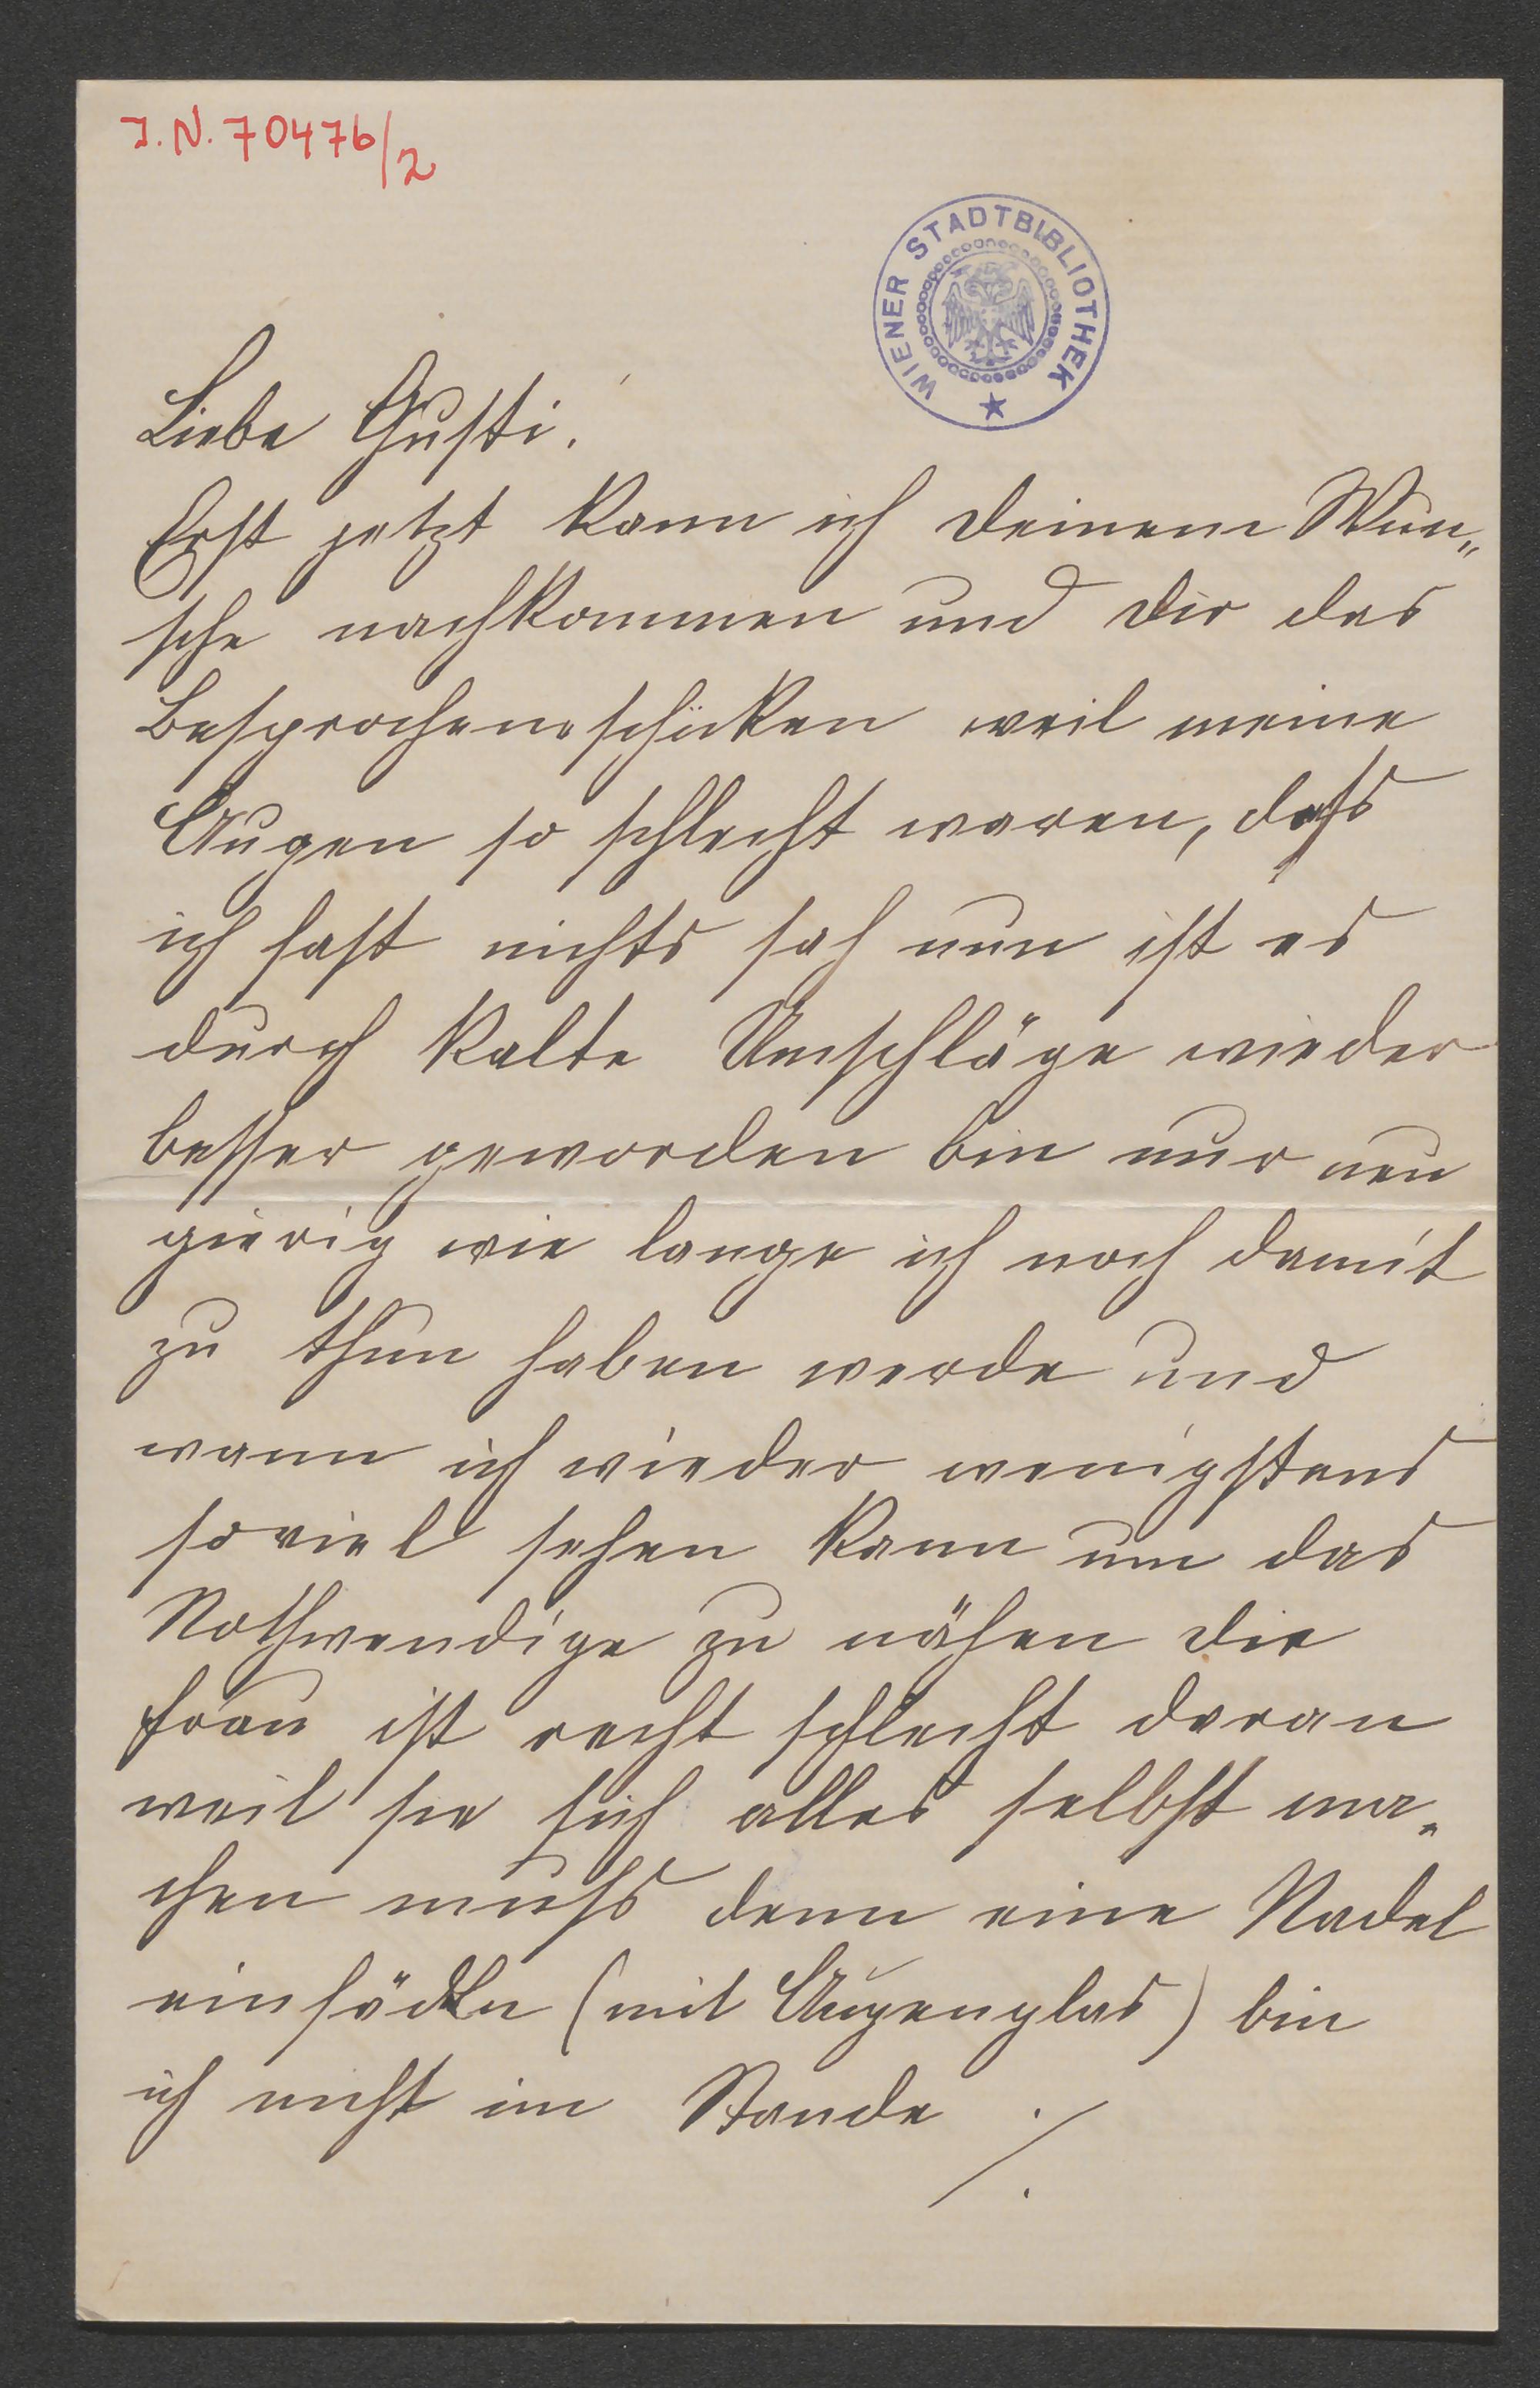 J.N. 70476/2
WIENER STADTBIBLIOTHEK
Liebe Gusti!
Erst jetzt kann ich deinem Wun„
sche nachkommen und dir das
Besprochene schicken weil meine
Augen so schlecht waren, dass
ich fast nichts sah nun ist es
durch kalte Umschläge wieder
besser geworden bin nur neu
gierig wie lange ich noch damit
zu thun haben werde und
wann ich wieder wenigstens
soviel sehen kann um das
Nothwendige zu nähen die
Frau ist recht schlecht daran
weil sie sich alles selbst ma„
chen muss denn eine Nadel
einfädeln (mit Augenglas) bin
ich nicht im Stande ./.